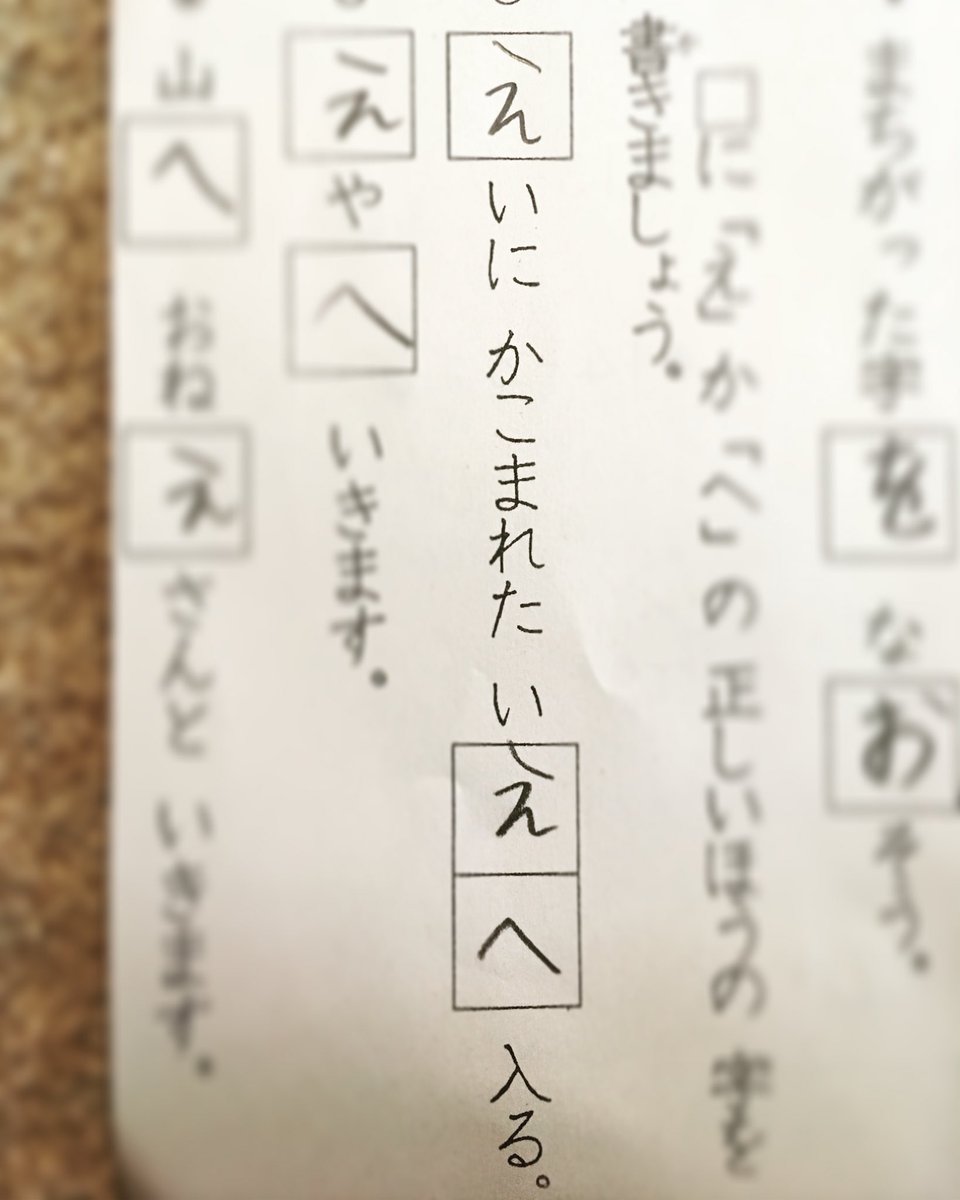 まちがった字を なおそう。
□に「え」か「へ」の 正しいほうの 字を
書きましょう。
えいに かこまれた いえへ 入る。
えやへ いきます。
山へ おねえさんと いきます。